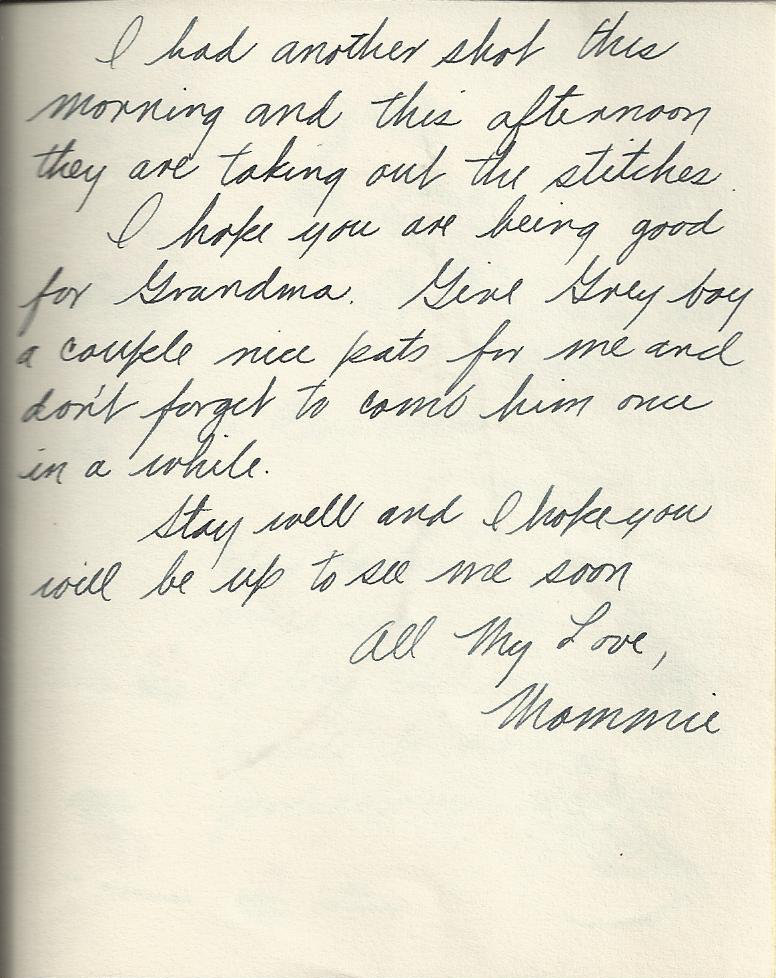 I had another shot this
morning and this afternoon
they are taking out the stitches.
I hope you are being good
for Grandma. Give Grey boy
a couple nice pats for me and
don't forget to comb him once
in a while.
Stay well and I hope you
will be up to see me soon
All My Love,
Mommie